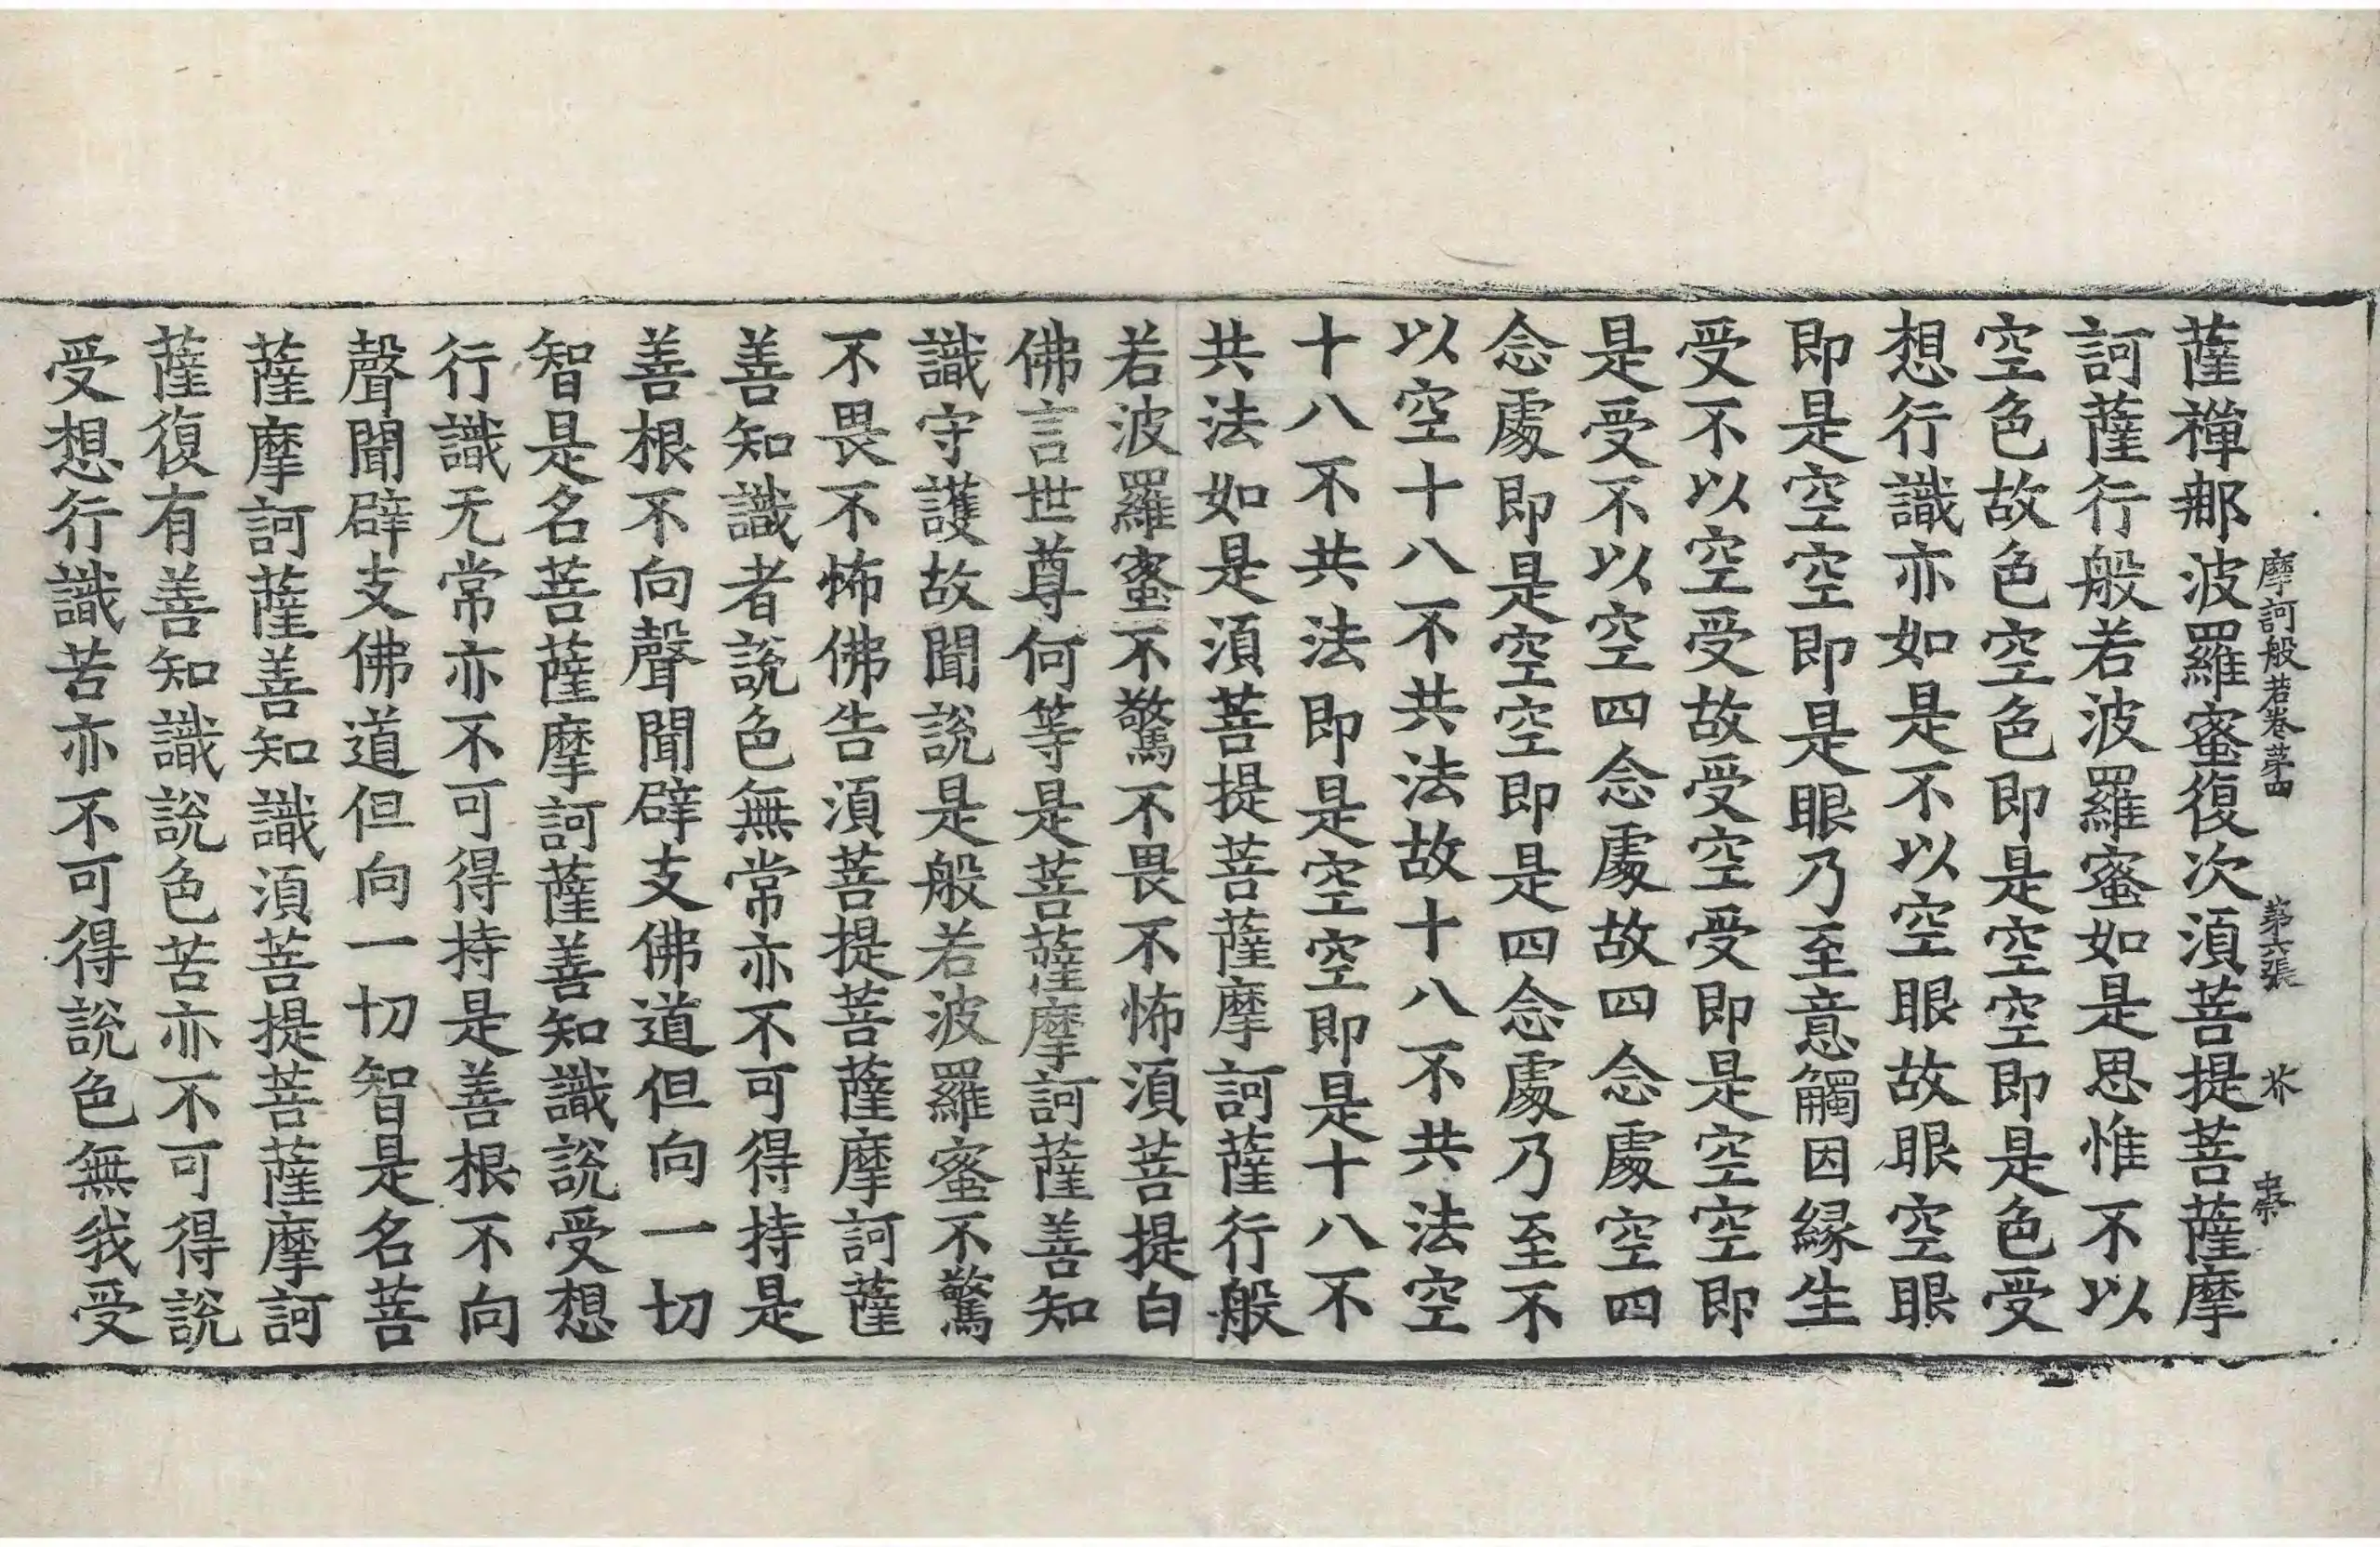 摩訶般若卷苐四 苐六張 芥 忠
薩禪那波羅蜜復次須菩提菩薩摩
訶薩行般若波羅蜜如是思惟不以
空色故色空色即是空空即是色受
想行識亦如是不以空眼故眼空眼
即是空空即是眼乃至意觸因緣生
受不以空受故受空受即是空空即
是受不以空四念處故四念處空四
念處即是空空即是四念處乃至不
以空十八不共法故十八不共法空
十八不共法即是空空即是十八不
共法如是須菩提菩薩摩訶薩行般
若波羅蜜不驚不畏不怖須菩提白
佛言世尊何等是菩薩摩訶薩善知
識守護故聞說是般若波羅蜜不驚
不畏不怖佛告須菩提菩薩摩訶薩
善知識者說色無常亦不可得持是
善根不向聲聞辟支佛道但向一切
智是名菩薩摩訶薩善知識說受想
行識无常亦不可得持是善根不向
聲聞辟支佛道但向一切智是名菩
薩摩訶薩善知識須菩提菩薩摩訶
薩復有善知識說色苦亦不可得說
受想行識苦亦不可得說色無我受